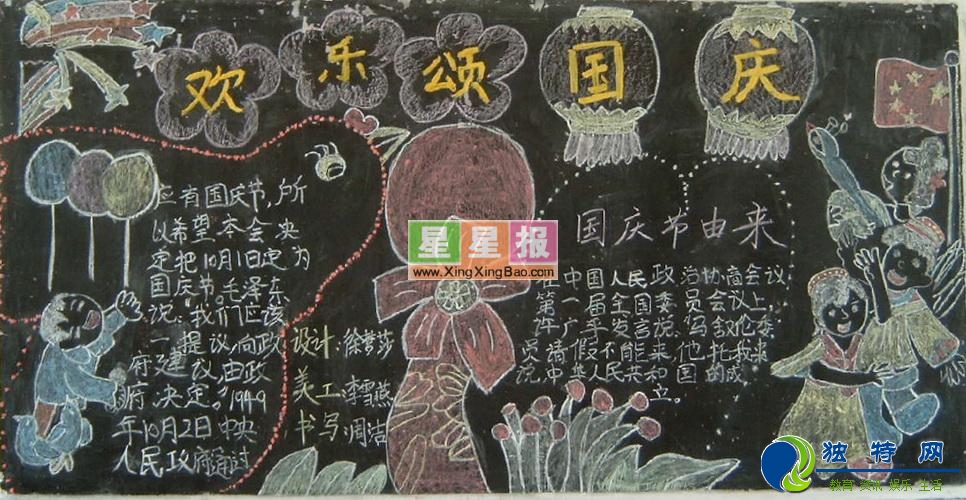 欢乐颂国庆
国庆节由来
中国人民政治协商会议
第一届全国委员会议上,
许广平发言说:马叙伦委
员请假不能来,他托我来
说中华人民共和国的成
立.
应有国庆节,所
以希望本会决
定把10月1日定为
国庆节。毛泽东
说:"我们应该
一提议,向政
府建议,由政
府决定。"1949
年10月2日中央
人民政府通过
设计:徐梦莎
美工:李雪燕
书写:周洁
星星报
www.XingXingBao.com
独特网
教育·资讯·娱乐·生活